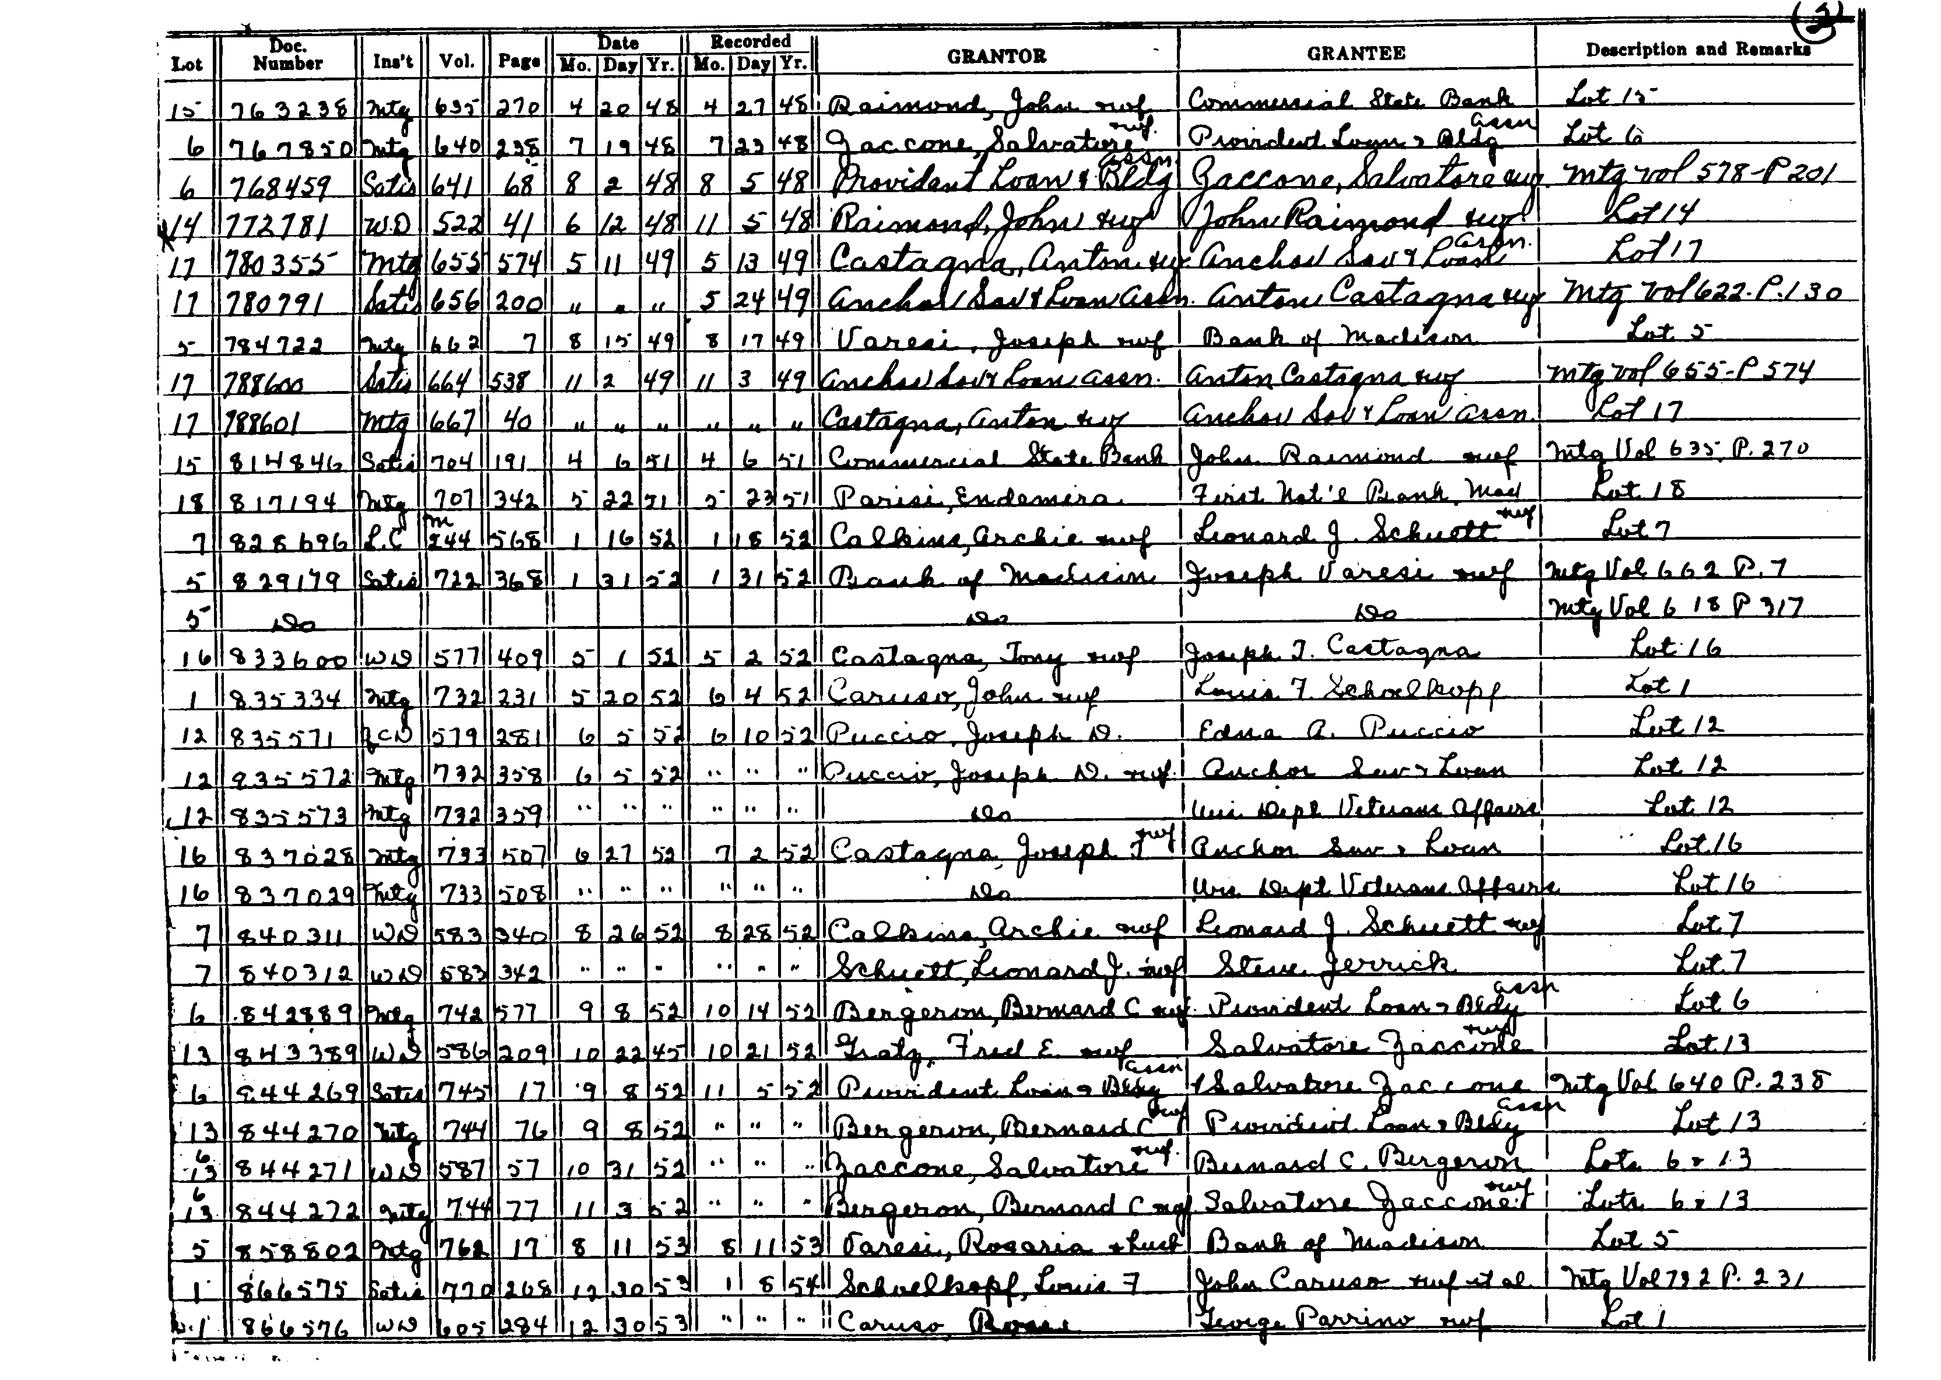 (3)
Lot Doc. Number Ins't Vol. Page Date Mo. Day Yr. Recorded Mo. Day Yr. GRANTOR GRANTEE Description and Remarks
15 763238 Mtg 635 270 4 20 48 4 27 48 Raimond, John &wf Commercial State Bank Lot 15
6 767850 Mtg 640 238 7 19 48 7 23 48 Zaccone, Salvatore &wf. Provident Loan & Bldg assn Lot 6
6 768459 Satis 641 68 8 2 48 8 5 48 Provident Loan & Bldg assn. Zaccone, Salvatore &wf. Mtg vol 578-P201
14 772781 W.D 522 41 6 12 48 11 5 48 Raimond, John &wf John Raimond &wf Lot 14
17 780355 Mtg 655 574 5 11 49 5 13 49 Castagna, Anton &wf Anchor Sav & Loan assn. Lot 17
17 780791 Satis 656 200 " " " 5 24 49 Anchor Sav & Loan Assn. Anton Castagna &wf Mtg Vol 622-P.130
5 784722 Mtg 662 7 8 15 49 8 17 49 Varesi, Joseph &wf Bank of Madison Lot 5
17 788600 Satis 664 538 11 2 49 11 3 49 Anchor Sav & Loan Assn. Anton Castagna &wf Mtg vol 655-P574
17 788601 Mtg 667 40 " " " " " " Castagna, Anton &wf Anchor Sav & Loan Assn. Lot 17
15 814846 Satis 704 191 4 6 51 4 6 51 Commercial State Bank John Raimond &wf Mtg Vol 635. P. 270
18 817194 Mtg 707 342 5 22 51 5 23 51 Parisi, Endamira First Nat'l Bank, Mad Lot 18
7 828696 L.C m 244 568 1 16 52 1 18 52 Calkins, Archie &wf Leonard J. Schuett &wf Lot 7
5 829179 Satis 722 368 1 31 52 1 31 52 Bank of Madison Joseph Varesi &wf Mtg Vol 662 P. 7
5 Do Do Do Mtg Vol 618 P 317
16 833600 WD 577 409 5 1 52 5 2 52 Castagna, Tony &wf Joseph T. Castagna Lot 16
1 835334 Mtg 732 231 5 20 52 6 4 52 Caruso, John &wf Louis F. Schoelkopf Lot 1
12 835571 QCD 579 281 6 5 52 6 10 52 Puccio, Joseph D. Edna A. Puccio Lot 12
12 835572 Mtg 732 358 6 5 52 " " " Puccio, Joseph D. &wf. Anchor Sav & Loan Lot 12
12 835573 Mtg 732 359 " " " " " " Do Wis. Dept Veterans Affairs Lot 12
16 837028 Mtg 733 507 6 27 52 7 2 52 Castagna, Joseph T &wf Anchor Sav & Loan Lot 16
16 837029 Mtg 733 508 " " " " " " Do Wis Dept Veterans Affairs Lot 16
7 840311 WD 583 340 8 26 52 8 28 52 Calkins, Archie &wf Leonard J. Schuett &wf Lot 7
7 840312 WD 583 342 " " " " " " Schuett, Leonard J. &wf Steve Jerrick Lot 7
6 842889 Mtg 742 577 9 8 52 10 14 52 Bergeron, Bernard C &wf. Provident Loan & Bldg assn Lot 6
13 843389 WD 586 209 10 22 45 10 21 52 Gratz, Fred E. &wf Salvatore Zaccone &wf Lot 13
6 844269 Satis 745 17 9 8 52 11 5 52 Provident Loan & Bldg assn Salvatore Zaccone Mtg Vol 640 P. 238
13 844270 Mtg 744 76 9 8 52 " " " Bergeron, Bernard C &wf Provident Loan & Bldg assn Lot 13
6 13 844271 WD 587 57 10 31 52 " " " Zaccone, Salvatore &wf. Bernard C. Bergeron Lots 6 & 13
6 13 844272 Mtg 744 77 11 3 52 " " " Bergeron, Bernard C &wf Salvatore Zaccone &wf Lots 6 & 13
5 858802 Mtg 762 17 8 11 53 8 11 53 Varesi, Rosaria & husb Bank of Madison Lot 5
1 866575 Satis 770 268 12 30 53 1 8 54 Schoelkopf, Louis F John Caruso &wf et al Mtg Vol 732 P. 231
1 866576 WD 605 284 12 30 53 " " " Caruso, Rose George Parrino &wf Lot 1